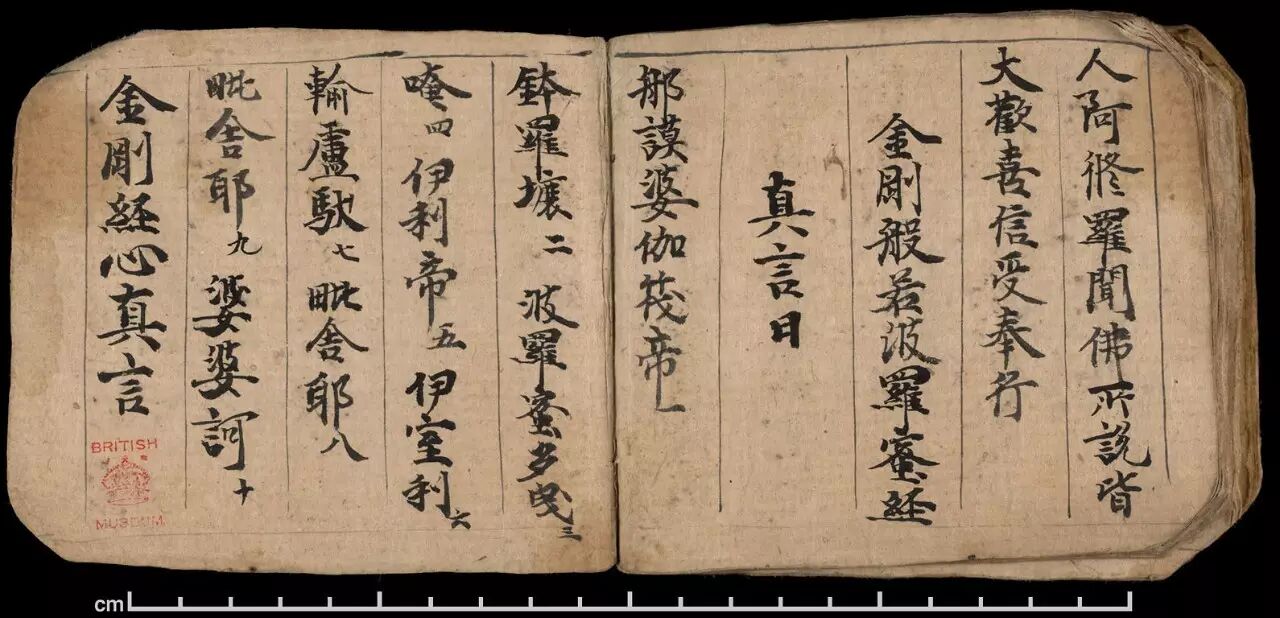 人阿修羅聞佛所說皆
大歡喜信受奉行
金剛般若波羅蜜經
真言曰
那謨婆伽筏帝一
鉢羅壤二波羅蜜多曳三
唵四伊利帝五伊室利六
輸盧馱七毗舍耶八
毗舍耶九婆婆訶十
金剛經心真言
BRITISH
MUSEUM
cm